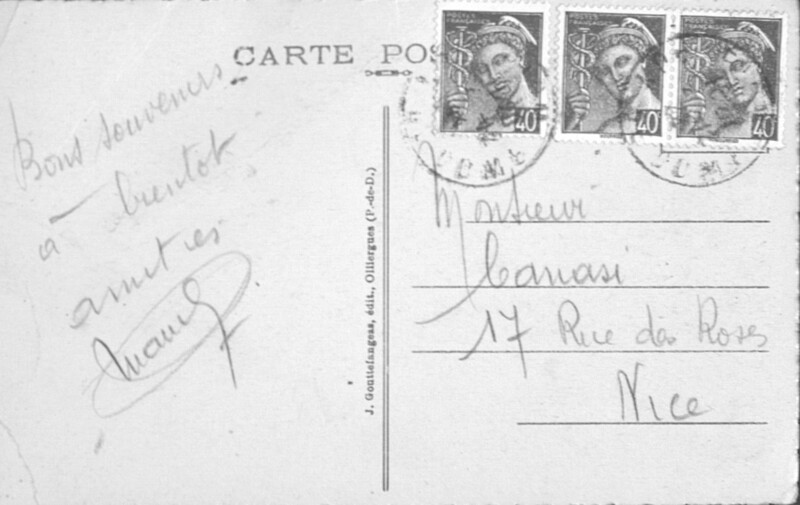 CARTE POS
POSTES FRANÇAISES
40
POSTES FRANÇAISES
40
POSTES FRANÇAISES
40
Bons souvenirs
à bientôt
amitiés
J. Gouttefangeas, édit., Olliergues (P.-de-D.)
Monsieur
Canasi
17 Rue des Roses
Nice